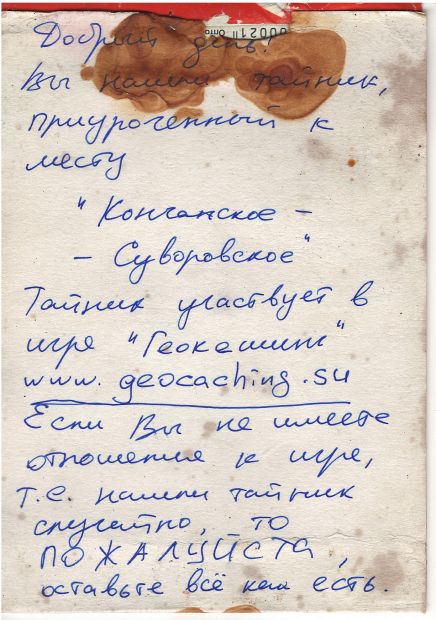 00021 II Опто
Добрый день!
Вы нашли тайник,
приуроченный к
месту
"Кончанское –
– Суворовское"
Тайник участвует в
игре "Геокешинг"
www.geocaching.su
Если Вы не имеете
отношения к игре,
т.е. нашли тайник
случайно, то
ПОЖАЛУЙСТА,
оставьте всё как есть.